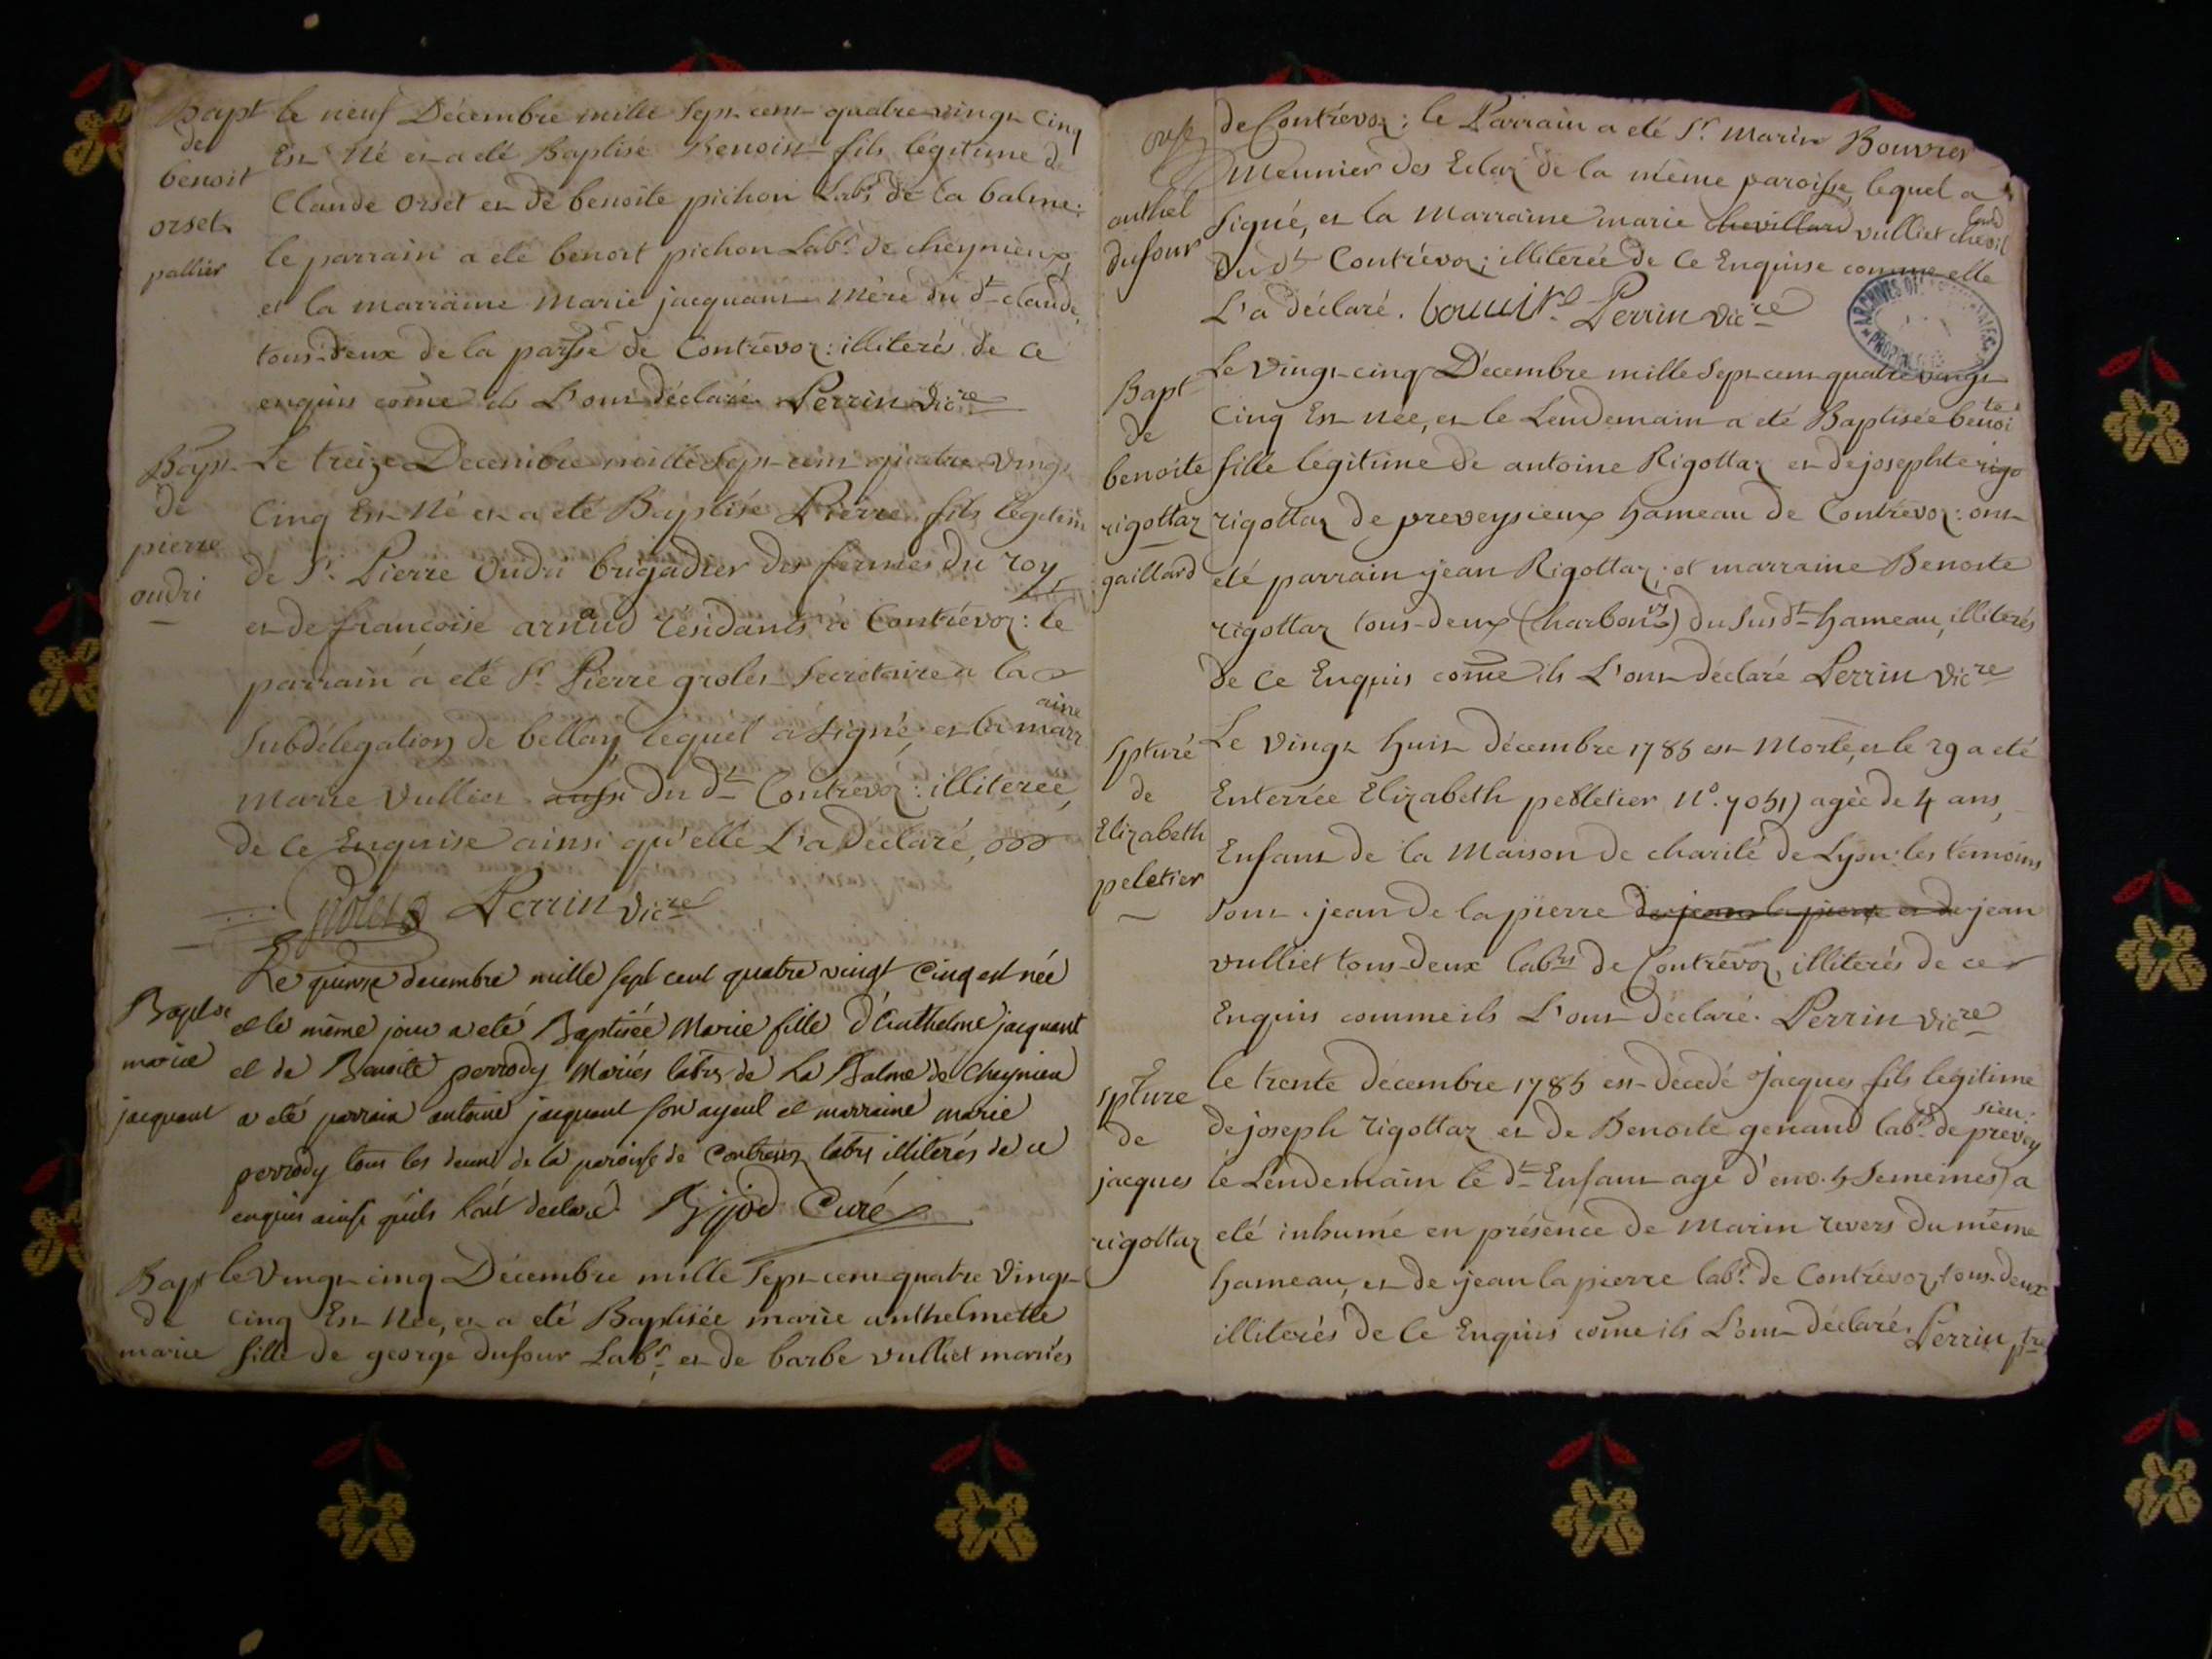 Bapt
de
benoit
orset
pallier
le neuf Décembre mille Sept-cent-quatre-vingt Cinq
Est Né et a eté Baptisé Benoist fils légitime de
Claude Orset et de benoite pichon Labrs de la balme:
le parrain a eté benoit pichon Labr de cheynieux,
et la marraine Marie jacquant Mère du dt claude,
tous-deux de la parsse de Contrévoz: illiterés de ce
enquis come ils L'ont déclaré Perrin Vicre
Bapt
de
pierre
oudri
Le treize Decembre mille sept-cent quatre vingt
Cinq Est Né et a eté Baptisé Pierre fils légitim
de Sr. Pierre Oudri brigadier des fermes du roy
et de françoise arnaud résidants à Contrévoz: le
parrain a eté Sr Pierre groles Secretaire a la
Subdélégation de bellay, lequel a signé, et la marraine
Marie Vulliet aussi du dt Contrévoz: illiterée,
de ce Enquise ainsi qu'elle L'a déclaré,
Perrin Vicre
Bapt de
marie
jacquant
Le quinze decembre mille sept cent quatre vingt Cinq est née
et le même jour a eté Baptisée Marie fille d'Anthelme jacquant
et de Benoite perrody Mariés labrs de La Balme de Cheynieu
a eté parrain antoine jacquant son ayeul et marraine marie
perrody tous les deux de la paroisse de Contrevoz labrs illiterés de ce
enquis ainsi quils l'ont declaré. Bijod Curé
Bapt
de
marie
le Vingt-cinq Décembre mille Sept-cent-quatre Vingt
cinq Est Née, et a eté Baptisée marie anthelmette
fille de george dufour Labr, et de barbe vulliet mariés
anthel
dufour
de Contrévoz: le Parrain a eté Sr. Marin Bouvier
Meunier des Eclaz de la même paroisse, lequel a
Signé, et la Marraine marie chevillard vulliet chevillard
du dt Contrévoz; illiterée de ce Enquise comme elle
L'a déclaré. bouvier Perrin Vicre
ARCHIVES
Bapt
de
benoite
rigottaz
gaillard
Le Vingt-cinq Décembre mille Sept-cent quatre vingt
Cinq Est née, et le Lendemain a eté Baptisée benoite
fille légitime de antoine Rigottaz et de josephte rigo
rigottaz de preveysieux hameau de Contrévoz: ont
eté parrain jean Rigottaz, et marraine Benoite
rigottaz tous-deux (charbonrs) du susdt hameau, illiterés
de ce Enquis come ils L'ont déclaré Perrin Vicre
Spturé
de
Elizabeth
peletier
Le Vingt huit décembre 1785 est Morte, et le 29 a eté
Enterrée Elizabeth pelletier N°. 7051) agée de 4 ans,
Enfant de la Maison de charité de Lyon: les témoins
sont jean de la pierre de jean la pierre et de jean
vulliet tous-deux labrs de Contrévoz, illiterés de ce
Enquis comme ils L'ont déclaré. Perrin Vicre
Spture
de
jacques
rigottaz
le trente décembre 1785 est décedé Jacques fils légitime
de joseph rigottaz et de Benoite genand labrs de prévey sieu.
le Lendemain le dt Enfant agé d'env. 5 Semeines) a
eté inhumé en présence de Marin revers du même
hameau, et de jean la pierre labr. de Contrévoz, tous-deux
illiterés de ce Enquis come ils L'ont déclaré, Perrin ptre